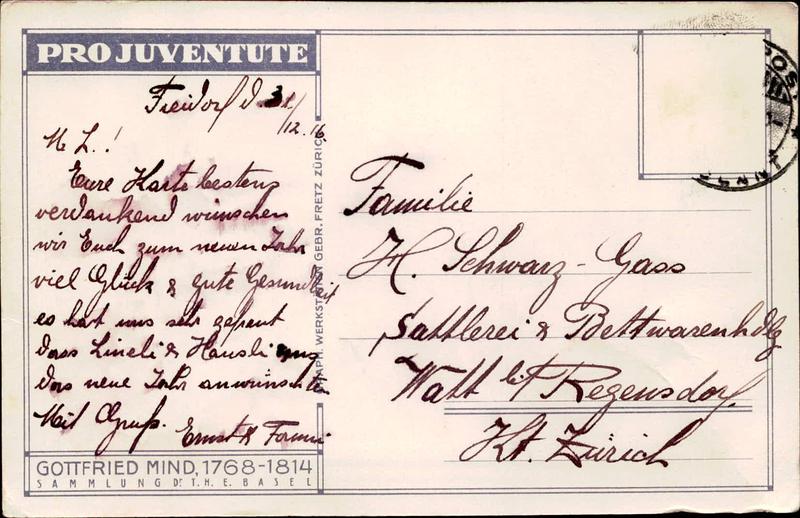 PRO JUVENTUTE
Freidorf d. 31/
12.16.
M. L.!
Eure Karte bestens
verdankend wünschen
wir Euch zum neuen Jahr
viel Glück & gute Gesundheit
es hat uns sehr gefreut
dass Lineli & Hausli uns
das neue Jahr anwünschte
Mit Gruss.
Ernst &
GOTTFRIED MIND, 1768-1814
SAMMLUNG DR. T. H. E. BASEL
GRAPH. WERKSTÄTTEN GEBR. FRETZ ZÜRICH
Familie
H. Schwarz-Gass
Sattlerei & Bettwarenhdlg
Watt bei Regensdorf
Kt. Zürich